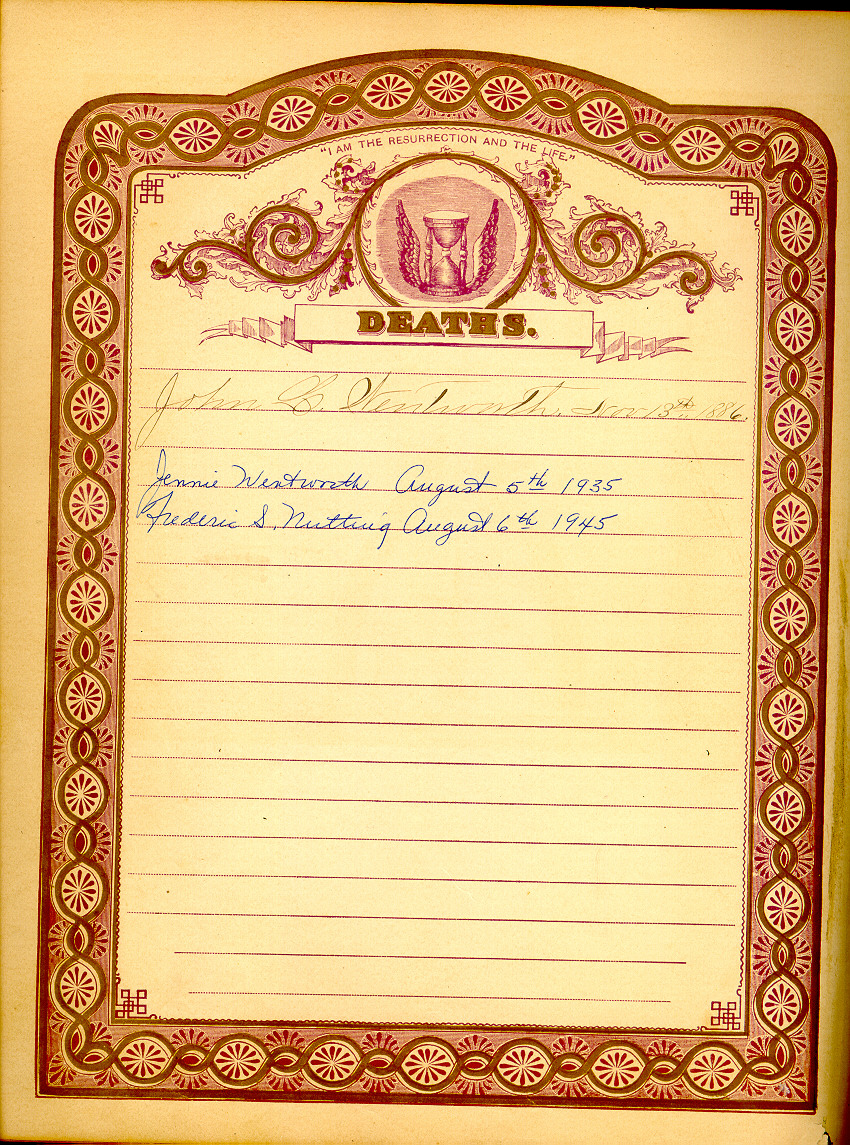 "I AM THE RESURRECTION AND THE LIFE."
DEATHS.
John C. Wentworth, Nov 13th, 1886.
Jennie Wentworth August 5th 1935
Frederic S. Nutting August 6th 1945